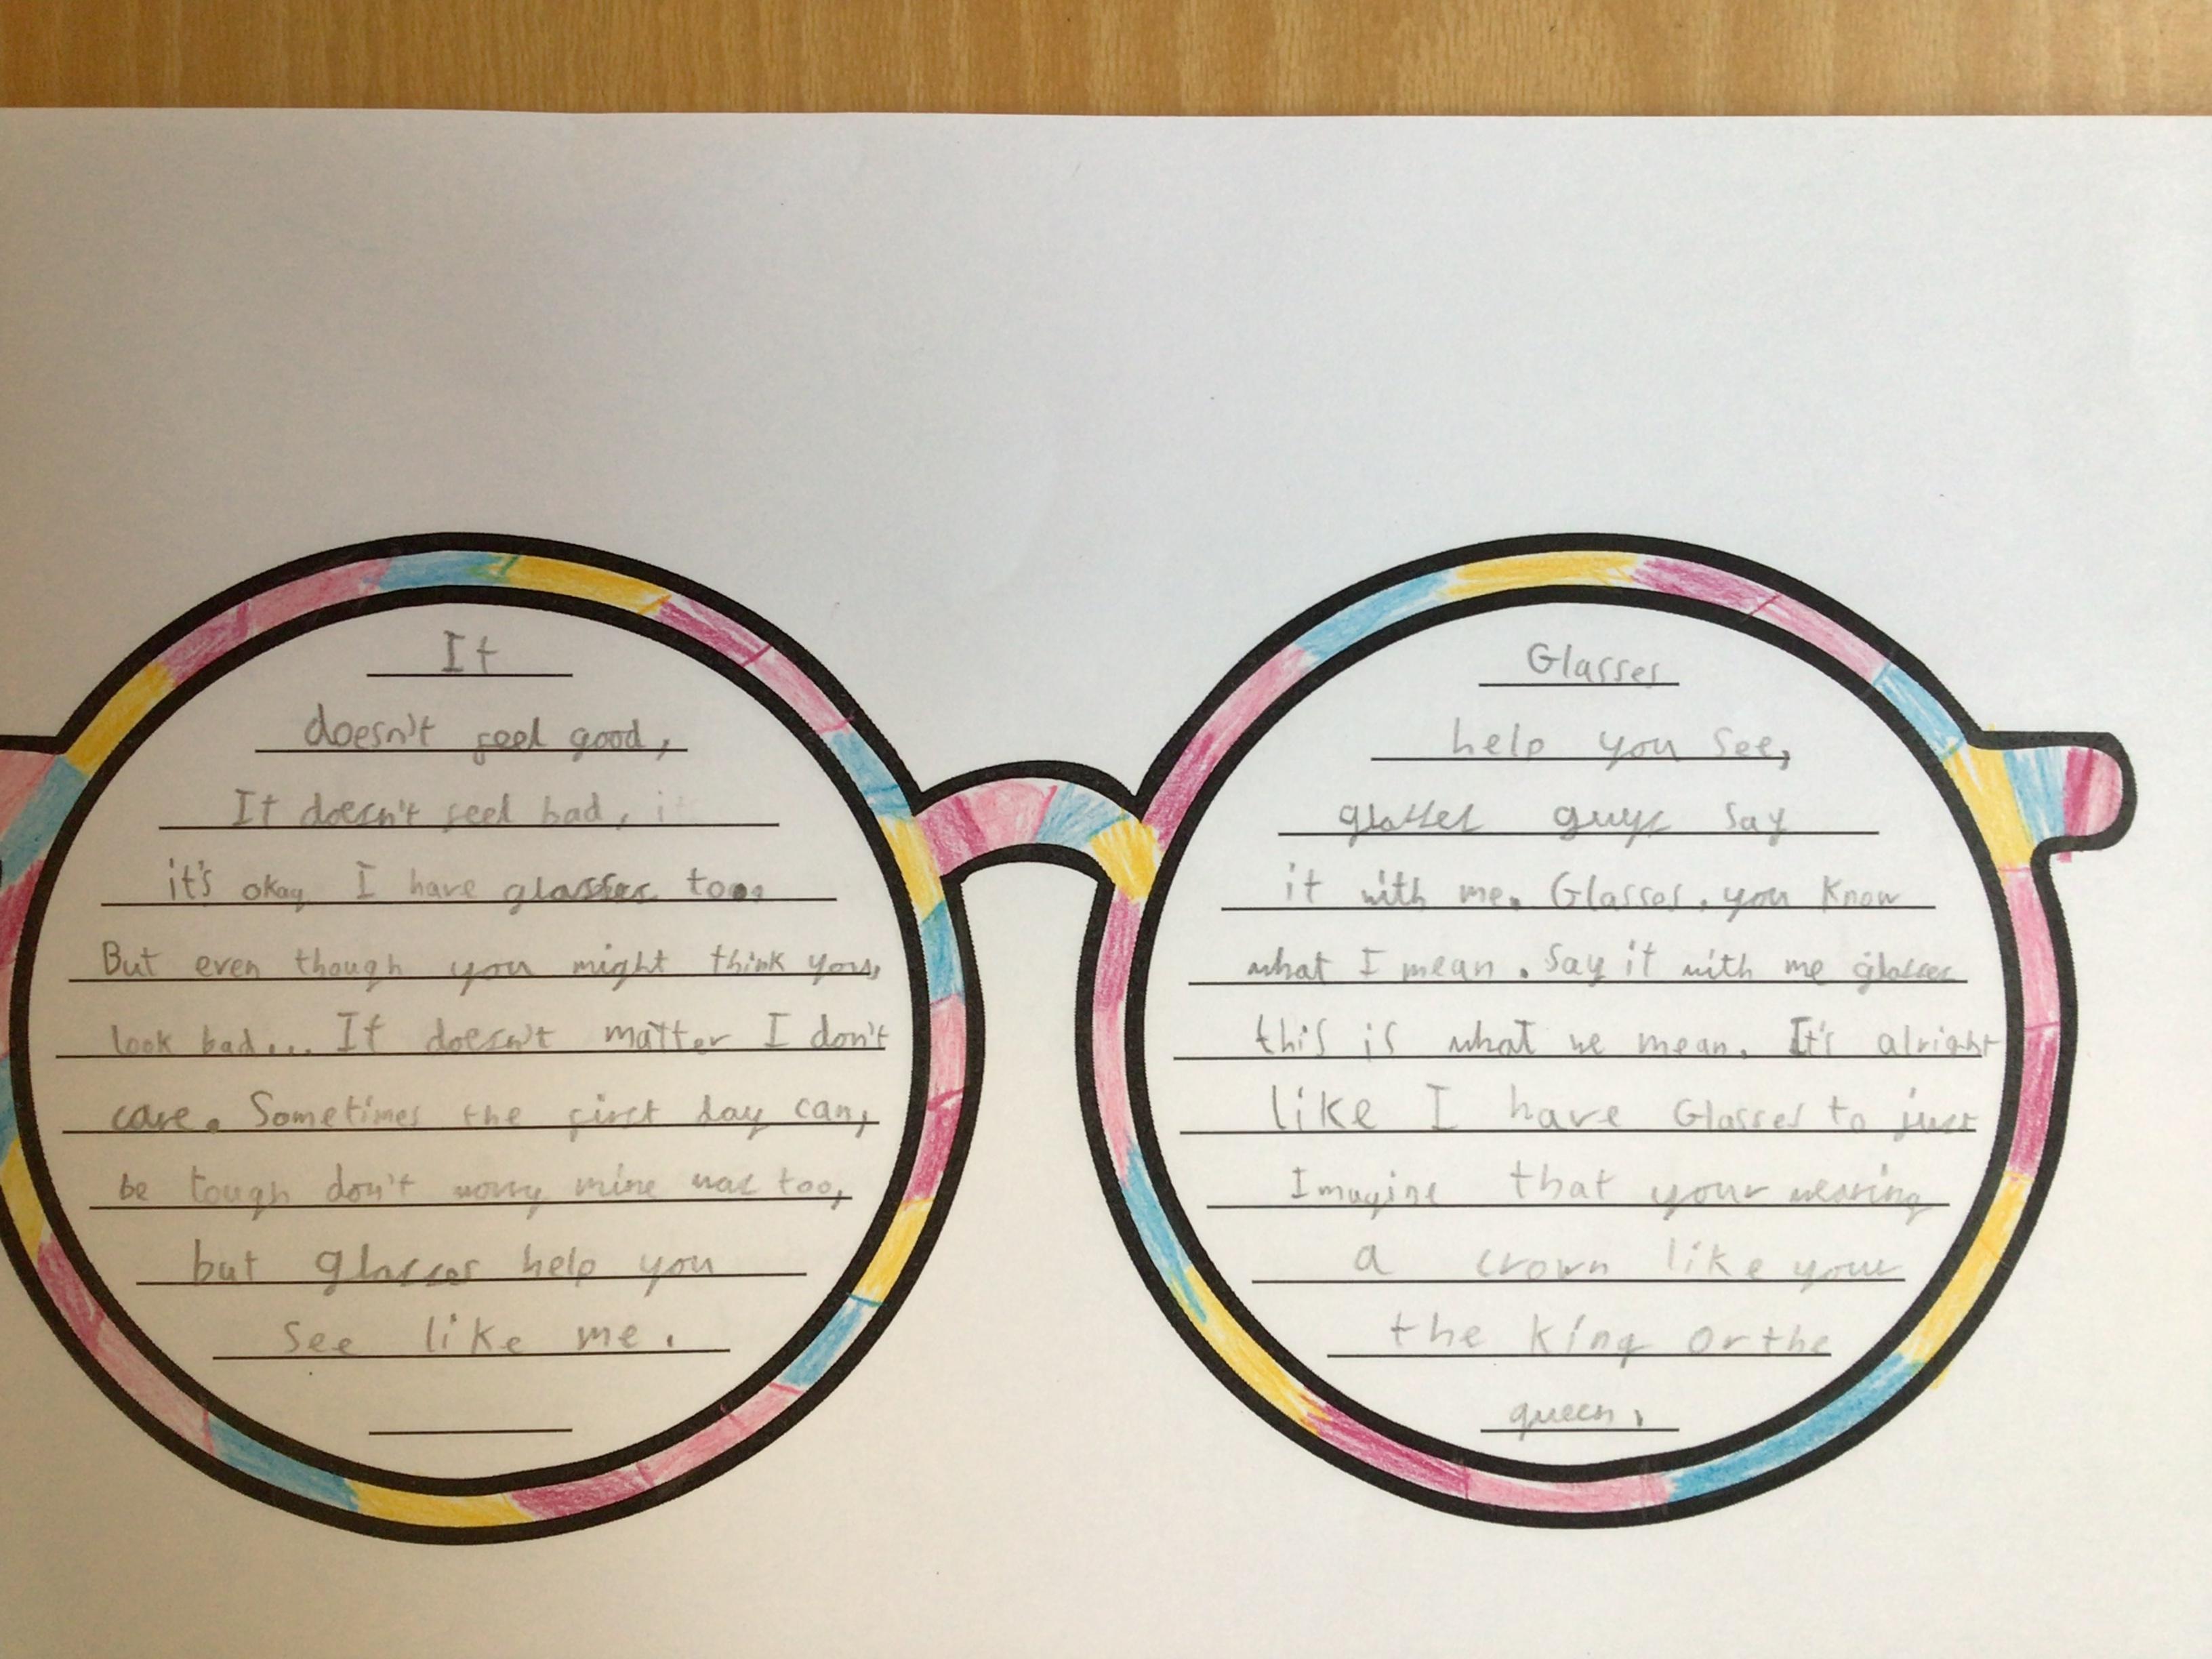 It
doesn't feel good,
It doesn't feel bad, it
it's okay I have glasses too.
But even though you might think you,
look bad... It doesn't matter I don't
care. Sometimes the first day can,
be tough don't worry mine was too,
but glasses help you
see like me.
Glasses
help you see,
glasses guys say
it with me. Glasses, you know
what I mean. Say it with me glasses
this is what we mean. It's alright
like I have Glasses to just
Imagine that your wearing
a crown like your
the king or the
queen.